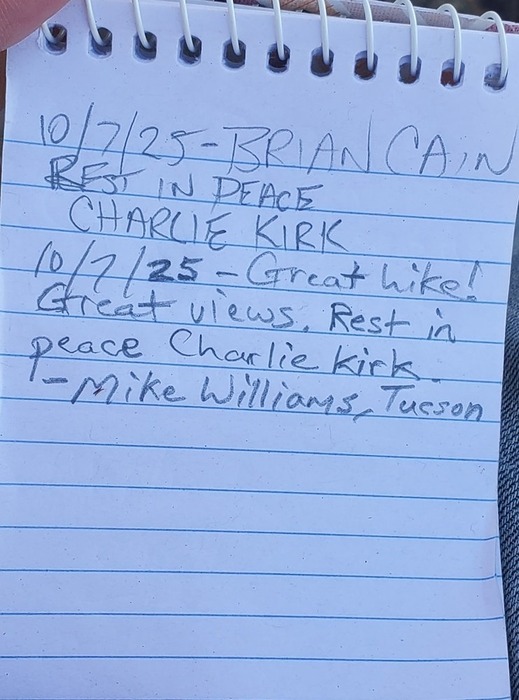 10/7/25-BRIAN CAIN
REST IN PEACE
CHARLIE KIRK
10/7/25-Great hike!
Great views. Rest in
peace Charlie Kirk.
-Mike Williams, Tucson